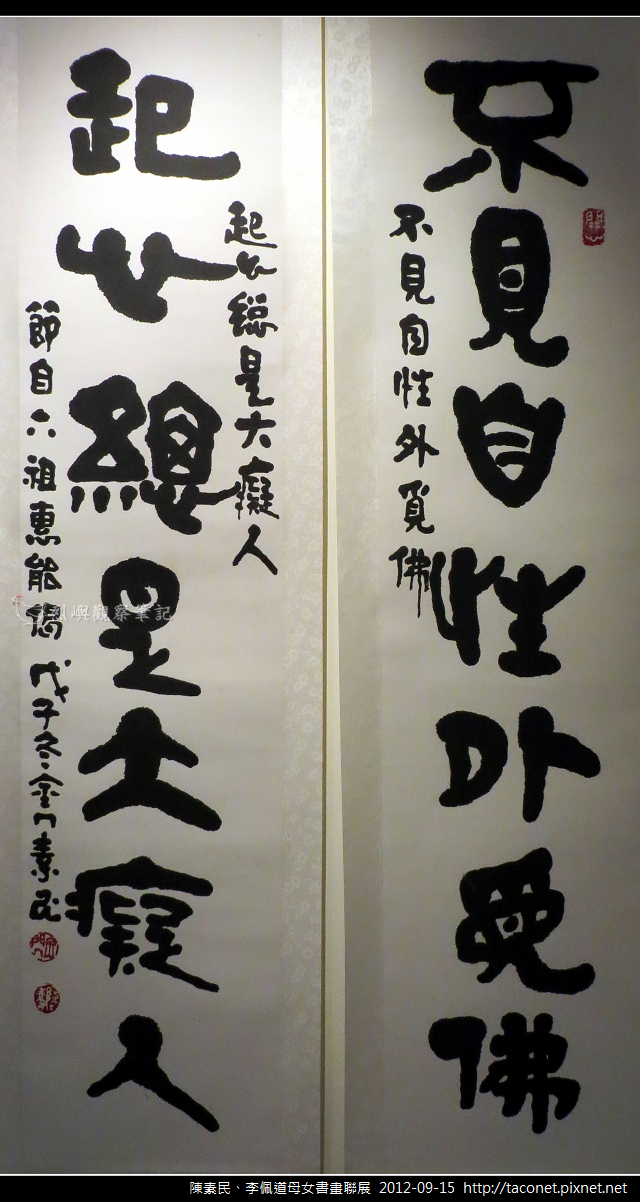 不見自性外覓佛
不見自性外覓佛
起心總是大癡人
起心總是大癡人
節自六祖惠能偈 戊子冬金門素民
烈嶼觀察筆記
陳素民、李佩道母女書畫聯展 2012-09-15 http://taconet.pixnet.net